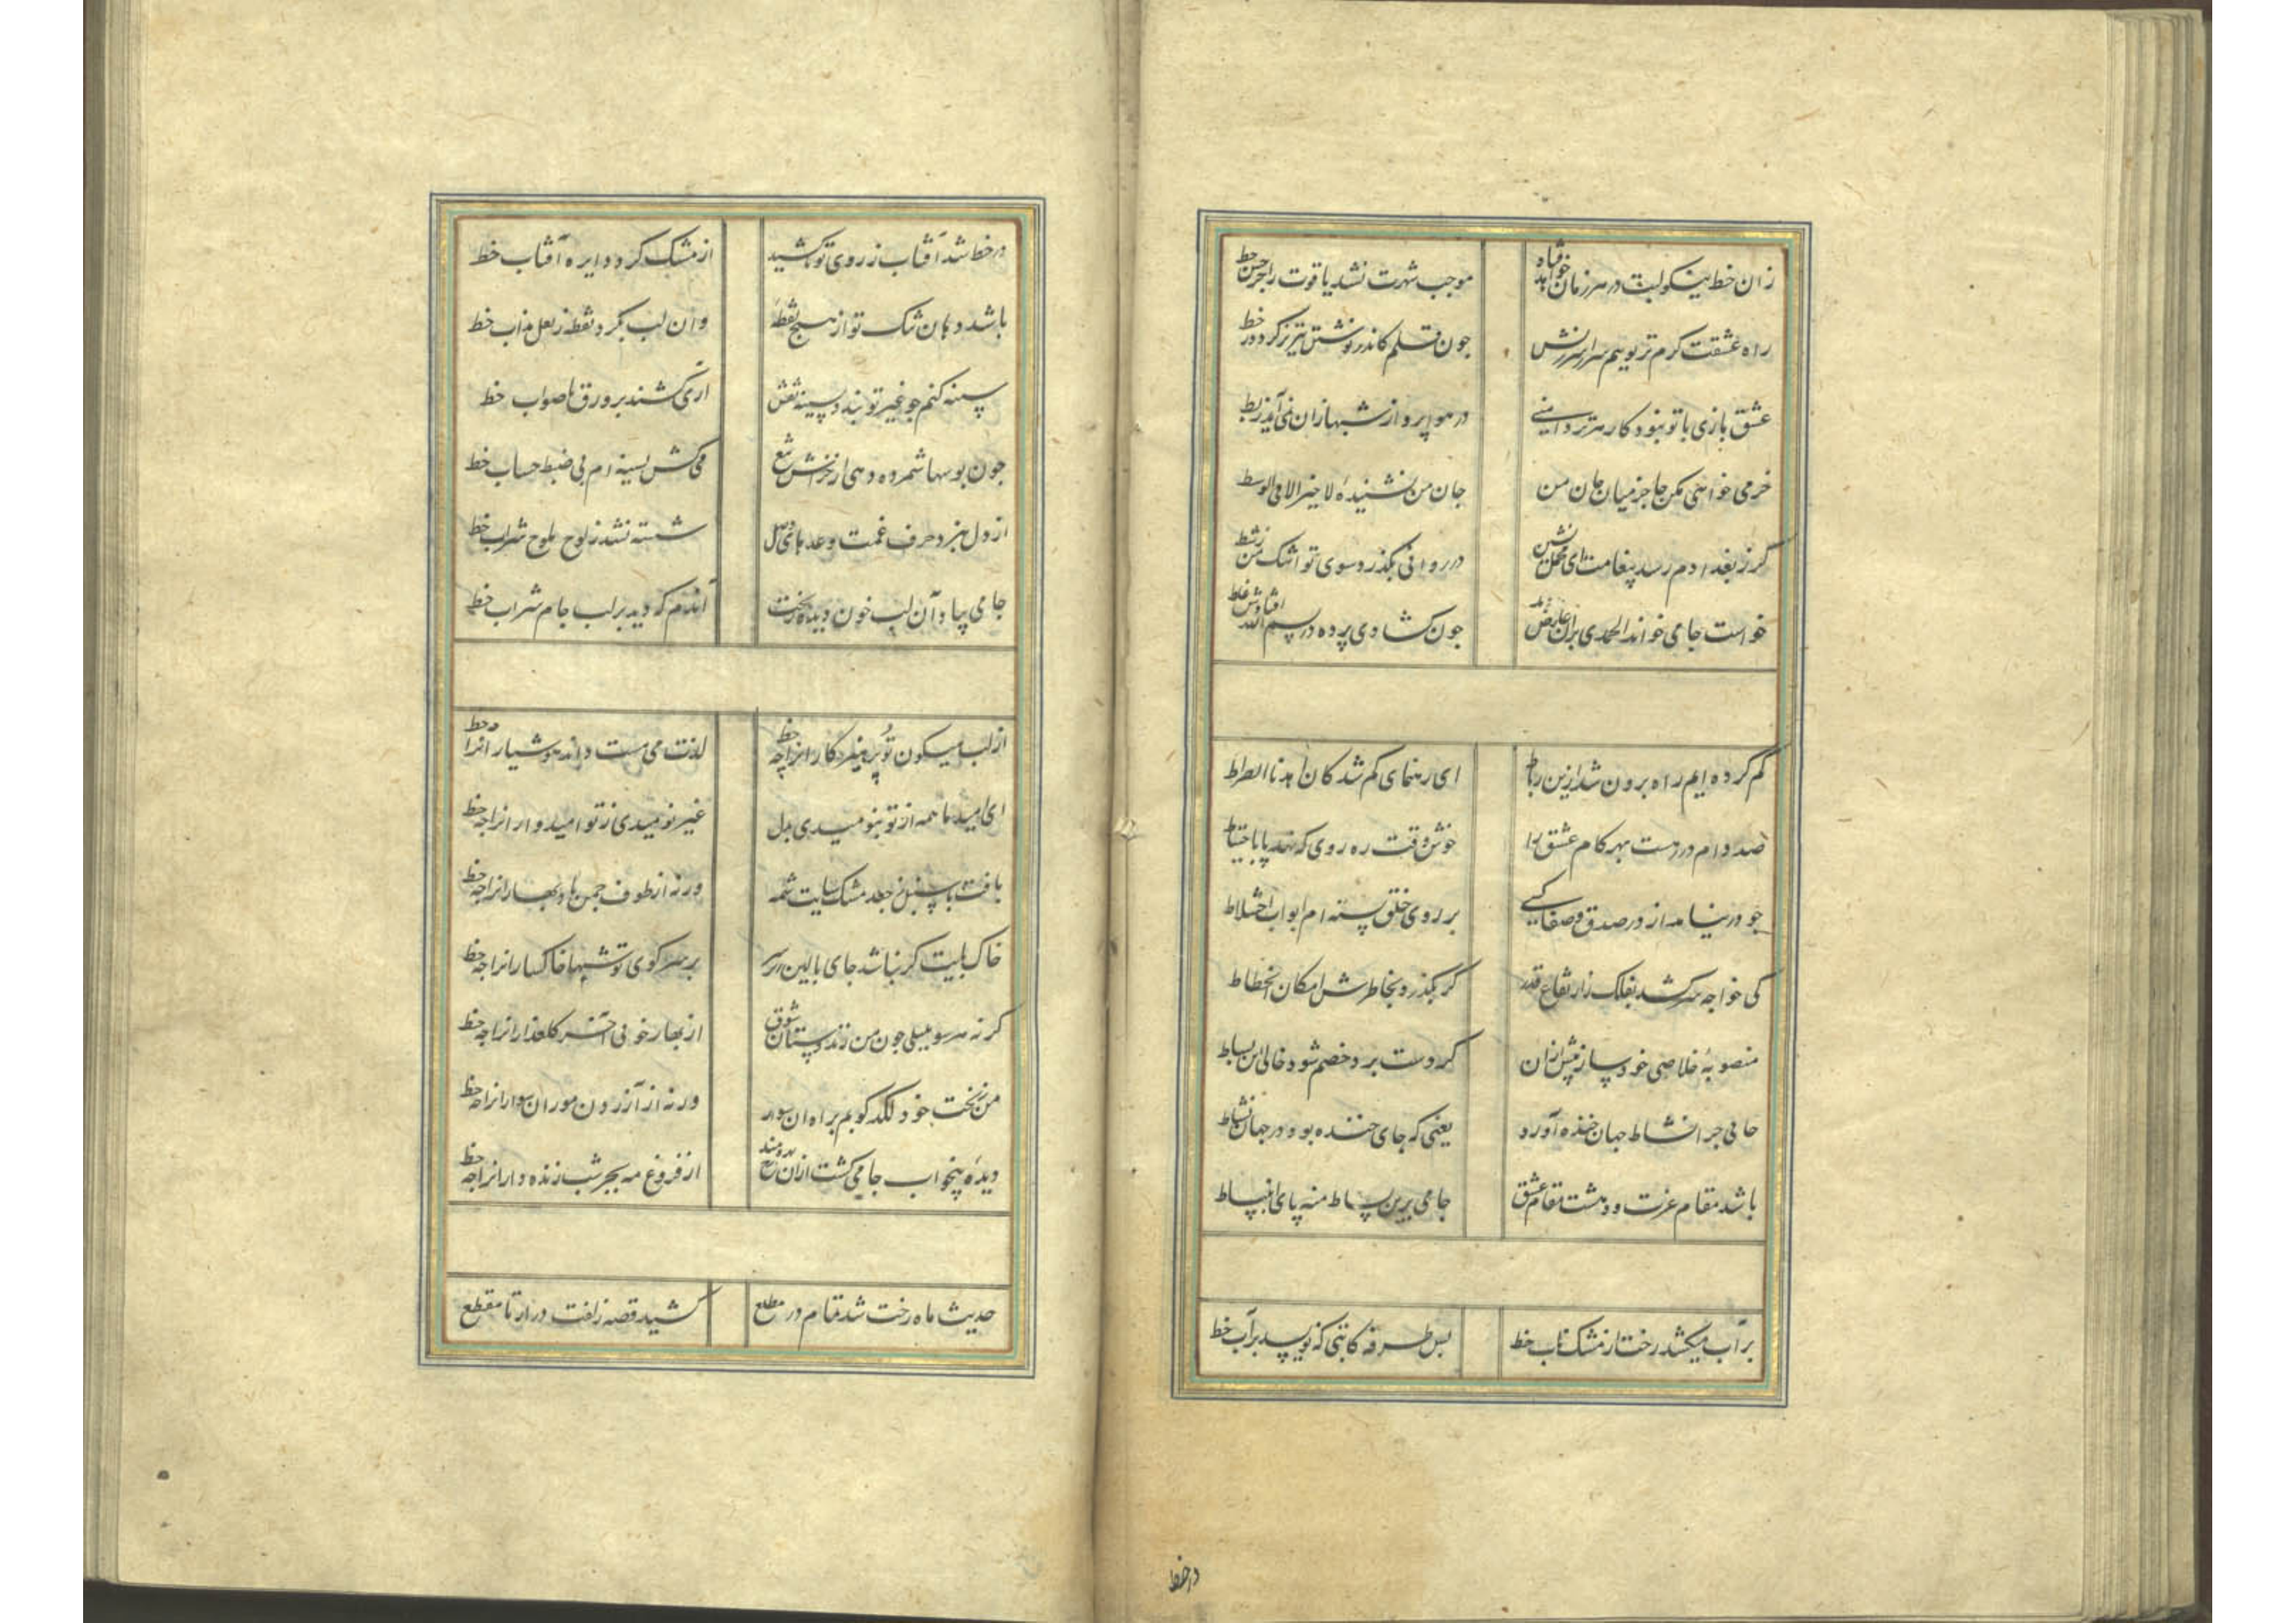 زان خط نیکو لبت در هر زمان خواهد
موجب شهرت نشد یاقوت را جز حسن خط
راه عشقت کرم تر پویم سراسر سرزنش
چون قلم کاندر نوشتن تیزتر کردد ز قط
عشق بازی با تو نبود کار هر تردامنی
در هوا پرواز شهبازان نمی آید ز بط
خرمی خواهی مکن جا جز میان جان من
جان من نشنیدهٔ لا خیر الا فی الوسط
کر ز بغدادم رسد پیغامت ای محمل نشین
در روانی بکذرد سوی تو اشک من ز شط
خواست جامی خواند الحمدی بران عارض
چون کشادی پرده در بسم الله افتادش غلط
کم کرده ایم راه برون شد ازین رباط
ای رهنمای کم شدکان اهدنا الصراط
صد دام در رهست بهر کام عشق را
خوش وقت ره روی که نهد پا باحتیاط
چو در نیامد از در صدق و صفا کسی
بر روی خلق بسته ام ابواب اختلاط
کی خواجه سر کشد بفلک ز ارتفاع قدر
کر بکذرد بخاطرش امکان انحطاط
منصوبهٔ خلاصی خود ساز پیش ازان
کز دست برد خصم شود خالی این بساط
جامی چرا نشاط جهان خنده آورد
یعنی که جای خنده بود در جهان نشاط
باشد مقام عزت و دهشت مقام عشق
جامی برین بساط منه پای انبساط
بر آب میکشد رخت از مشک ناب خط
بس طرفه کاتبی که نویسد بر آب خط
در خط
در خط شد آفتاب ز روی تو تا کشید
از مشک کرد دایره آفتاب خط
باشد دهان تنک تو از هیچ نقطهٔ
وان لب بکرد نقطه ز لعل مذاب خط
سینه کنم چو غیر تو بندد بسینه نقش
آری کشند بر ورق ناصواب خط
چون بوسها شمرده دهی از خراش تیغ
می کش بسینه ام پی ضبط حساب خط
از دل نبرد حرف غمت وعدهای وصل
شسته نشد ز لوح بلوح شراب خط
جامی بیاد آن لب خون دیده ریخت
آندم که دید بر لب جام شراب خط
از لب میکون تو پرهیزکار انرا چه حظ
لذت می مست داند هوشیار انرا چه حظ
ای امید ما همه از تو بنومیدی بدل
غیر نومیدی ز تو امیدوار انرا چه حظ
یافت باید سنبل جعد مشک سایت شمه
ورنه از طوف چمن باد بهار انرا چه حظ
خاک پایت کر نباشد جای بالین زیر سر
بر سر کوی تو شبها خاکسار انرا چه حظ
کر نه هر سو بلبلی چون من زند دستان شوق
از بهار خوبی آخر کلعذار انرا چه حظ
من ز بخت خود لکدکوبم براه ان سوار
ورنه از آزردن موران سوار انرا چه حظ
دیدهٔ بیخواب جامی کشت ازان رخ بهره مند
از فروغ مه بجز شب زنده دار انرا چه حظ
حدیث ماه رخت شد تمام در مطلع
کشید قصه زلفت دراز تا مقطع